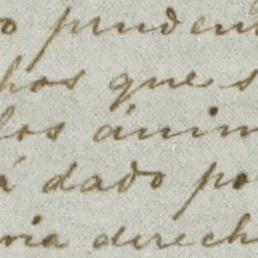 o pruden
chos que s
los ánim
á dado po
via derech